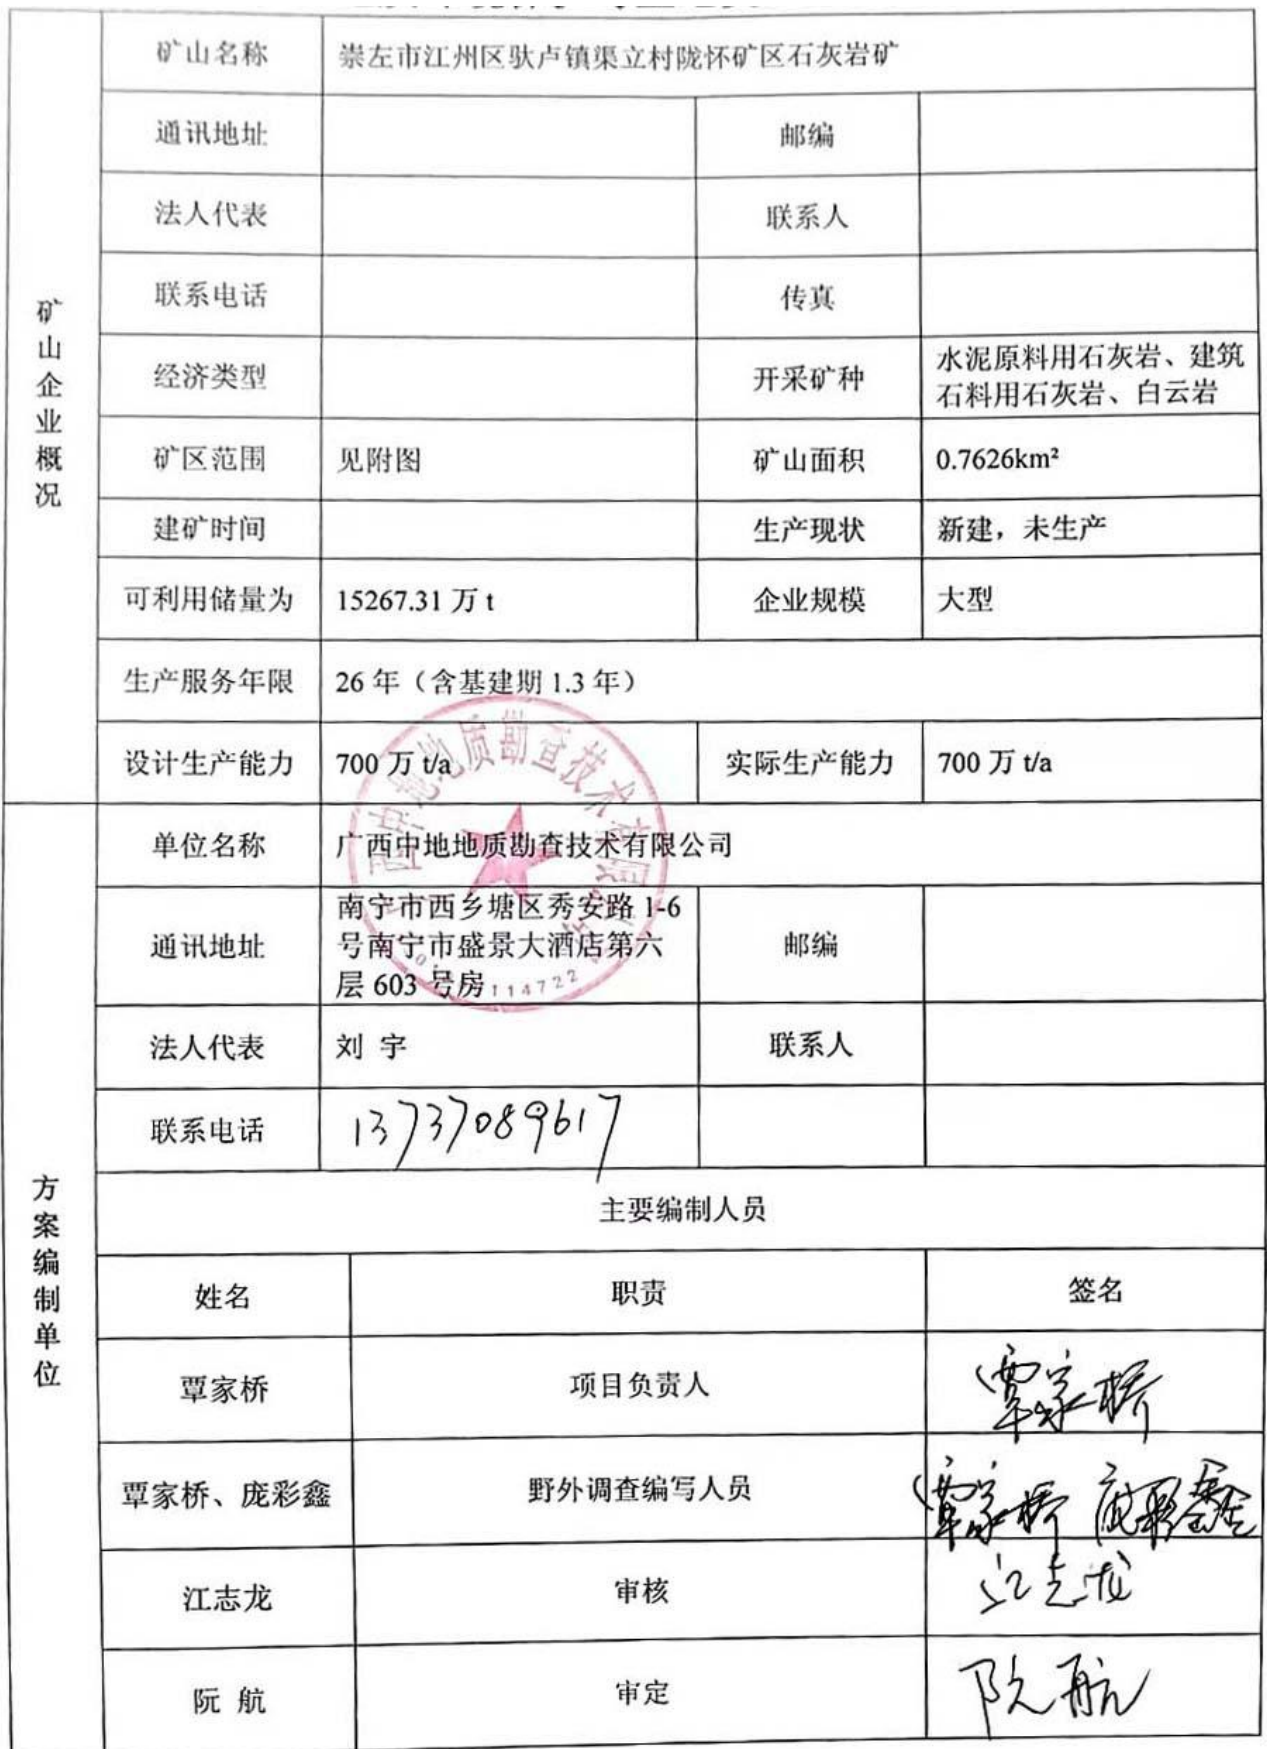 矿山企业概况
矿山名称 崇左市江州区驮卢镇渠立村陇怀矿区石灰岩矿
通讯地址 邮编
法人代表 联系人
联系电话 传真
经济类型 开采矿种 水泥原料用石灰岩、建筑
石料用石灰岩、白云岩
矿区范围 见附图 矿山面积 0.7626km²
建矿时间 生产现状 新建，未生产
可利用储量为 15267.31 万 t 企业规模 大型
生产服务年限 26 年（含基建期 1.3 年）
设计生产能力 700 万 t/a 实际生产能力 700 万 t/a
方案编制单位
单位名称 广西中地地质勘查技术有限公司
通讯地址 南宁市西乡塘区秀安路 1-6
号南宁市盛景大酒店第六
层 603 号房
邮编
法人代表 刘 宇 联系人
联系电话 13737089617
主要编制人员
姓名 职责 签名
覃家桥 项目负责人 覃家桥
覃家桥、庞彩鑫 野外调查编写人员 覃家桥 庞彩鑫
江志龙 审核 江志龙
阮 航 审定 阮航